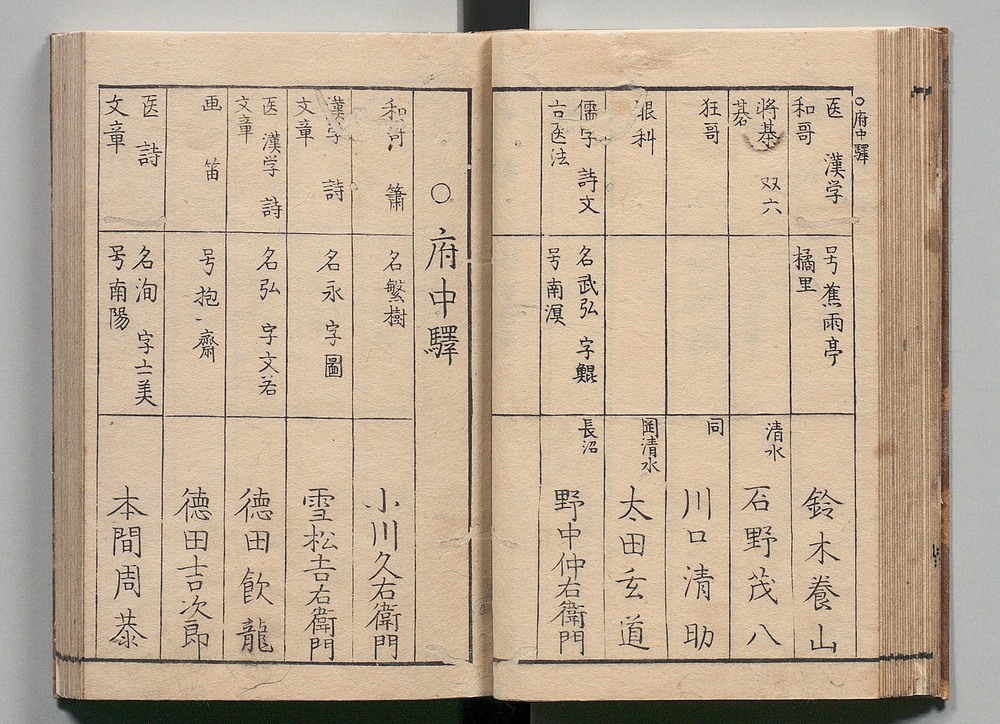 ○府中驛
医 漢学
和哥
号蕉雨亭
橘里
鈴木養山
将棊 双六
碁
清水
石野茂八
狂哥
同
川口清助
眼科
岡清水
太田玄道
儒学 詩文
古医法
名武弘 字鯤
号南溟
長沼
野中仲右衛門
○府中驛
和哥 簫
名繁樹
小川久右衛門
漢学 詩
文章
名永 字圖
雪松吉右衛門
医 漢学 詩
文章
名弘 字文若
徳田飲龍
画 笛
号抱一齋
徳田吉次郎
医 詩
文章
名洵 字士美
号南陽
本間周恭